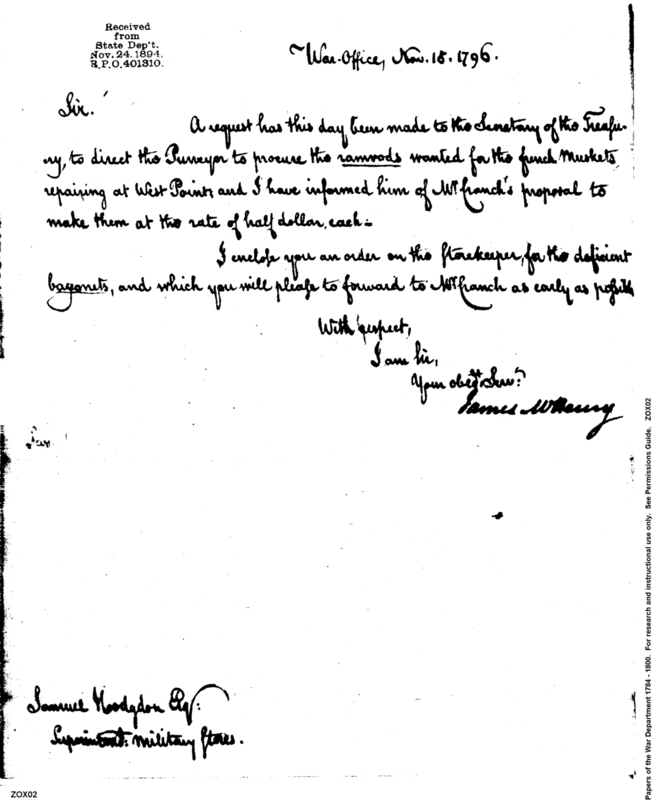 Received
from
State Dep't.
Nov. 24. 1894.
R.P.O. 401310.
War-Office, Nov. 18. 1796.
Sir.
A request has this day been made to the Secretary of the Treasu-
ry, to direct the Purveyor to procure the ramrods wanted for the french Muskets
repairing at West Point, and I have informed him of Mr. Cranch's proposal to
make them at the rate of half dollar, each.-
I enclose you an order on the Storekeeper, for the deficient
bayonets, and which you will please to forward to Mr. Cranch as early as possible
With respect,
I am Sir,
Your obedt. Servt.
James McHenry
Samuel Hodgdon Esqr:
Superintendt. military stores.
ZOX02
Papers of the War Department 1784 - 1800. For research and instructional use only. See Permissions Guide. ZOX02